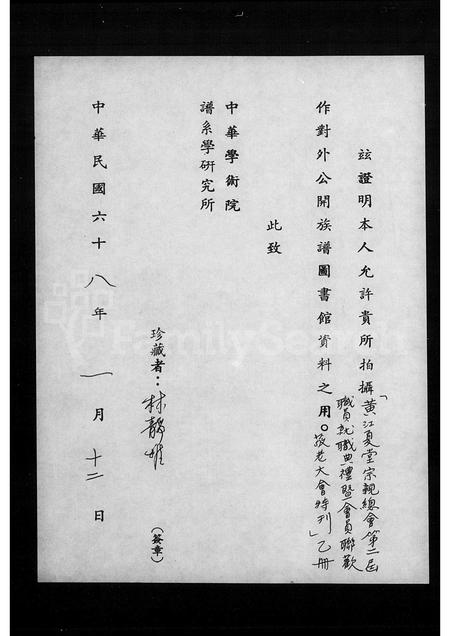 茲證明本人允許貴所拍攝「黃江夏堂宗親總會第二屆
職員就職典禮暨會員聯歡
敬老大會特刊」乙冊
作對外公開族譜圖書館資料之用。
此致
中華學術院
譜系學研究所
珍藏者：林
（簽章）
中華民國六十八年一月十二日
FamilySearch